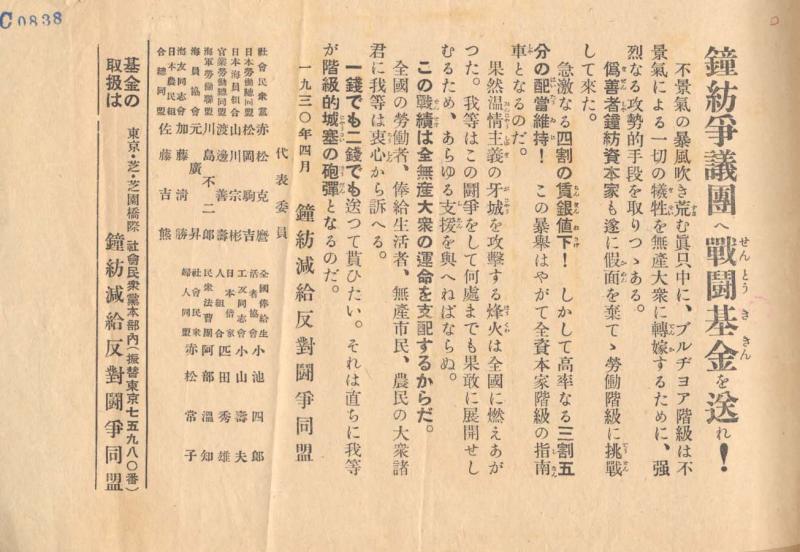 C0838
鐘紡爭議團へ戰鬪基金を送れ！
不景氣の暴風吹き荒む眞只中に、ブルヂヨア階級は不
景氣による一切の犠牲を無産大衆に轉嫁するために、强
烈なる攻勢的手段を取りつゝある。
僞善者鐘紡資本家も遂に假面を棄てゝ勞働階級に挑戰
して來た。
急激なる四割の賃銀値下！　しかして高率なる三割五
分の配當維持！　この暴擧はやがて全資本家階級の指南
車となるのだ。
果然温情主義の牙城を攻擊する烽火は全國に燃えあが
つた。我等はこの鬪爭をして何處までも果敢に展開せし
むるため、あらゆる支援を與へねばならぬ。
この戰績は全無産大衆の運命を支配するからだ。
全國の勞働者、俸給生活者、無産市民、農民の大衆諸
君に我等は衷心から訴へる。
一錢でも二錢でも送つて貰ひたい。それは直ちに我等
が階級的城塞の砲彈となるのだ。
一九三〇年四月　鐘紡減給反對鬪爭同盟
代表委員
社會民衆黨　赤松克麿
日本勞働總同盟　松岡駒吉
日本海員組合　山川宗彬
官業勞働總同盟　渡邊善壽
海軍勞働聯盟　川島不二郎
海員協會　元廣昇
海友同志會　加藤淸勝
日本農民組合總同盟　佐藤吉熊
全國俸給生活者協會　小池四郎
工友同志會　小山壽夫
日本倍家人組合　匹田秀雄
民衆法曹團　阿部溫知
社會民衆婦人同盟　赤松常子
基金の取扱は　東京・芝・芝園橋際　社會民衆黨本部內（振替東京七五九八〇番）
鐘紡減給反對鬪爭同盟